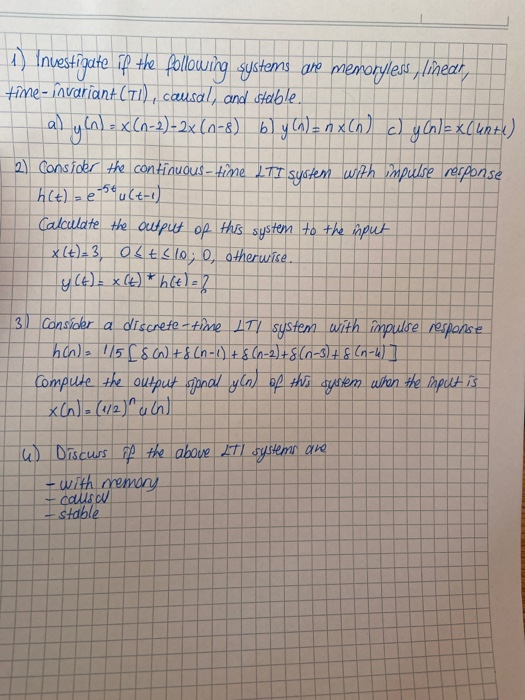 1) Investigate if the following systems are memoryless, linear,
time-invariant (TI), causal, and stable.
a) y(n) = x(n-2)-2x(n-8) b) y(n) = n x(n) c) y(n) = x(4n+1)
2) Consider the continuous-time LTI system with impulse response
h(t) = e^-5t u(t-1)
Calculate the output of this system to the input
x(t)=3, 0≤t≤10; 0, otherwise.
y(t) = x(t) * h(t) = ?
3) Consider a discrete-time LTI system with impulse response
h(n) = 1/5 [δ(n)+δ(n-1)+δ(n-2)+δ(n-3)+δ(n-4)]
Compute the output signal y(n) of this system when the input is
x(n) = (1/2)^n u(n)
4) Discuss if the above LTI systems are
- with memory
- causal
- stable